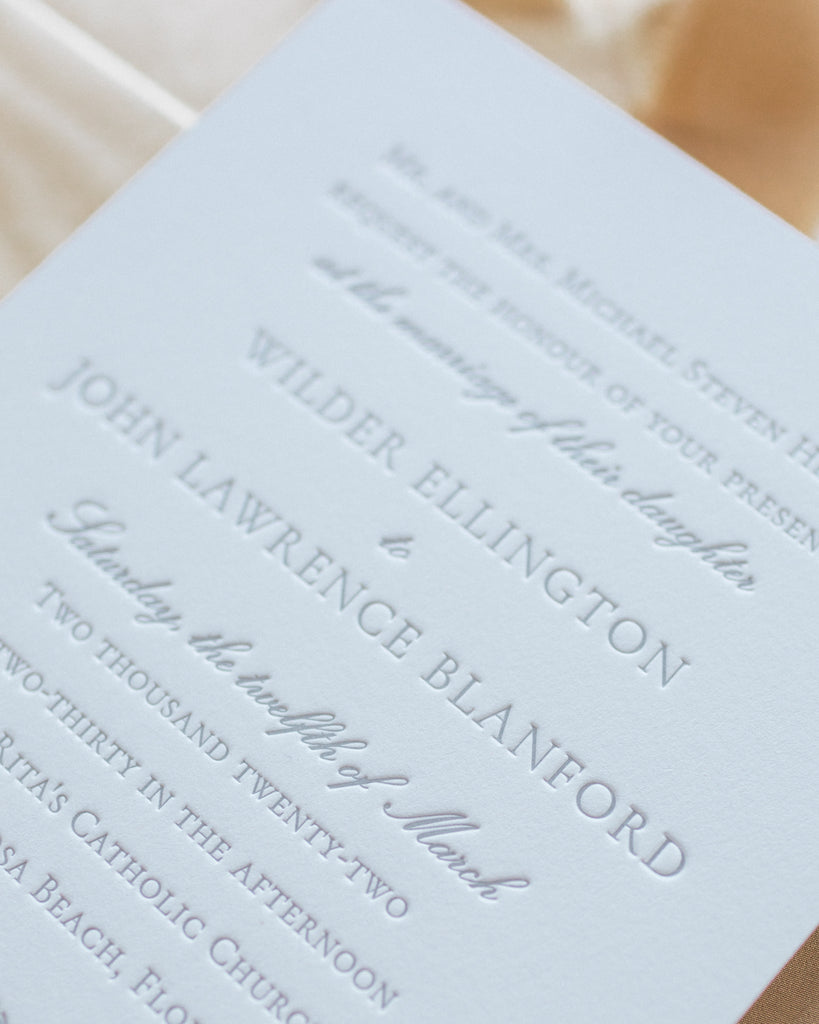 Mr. and Mrs. Michael Steven
request the honour of your
at the marriage of their daughter
WILDER ELLINGTON
to
JOHN LAWRENCE BLANFORD
Saturday, the twelfth of March
Two thousand twenty-two
two-thirty in the afternoon
Rita's Catholic Church
Beach,